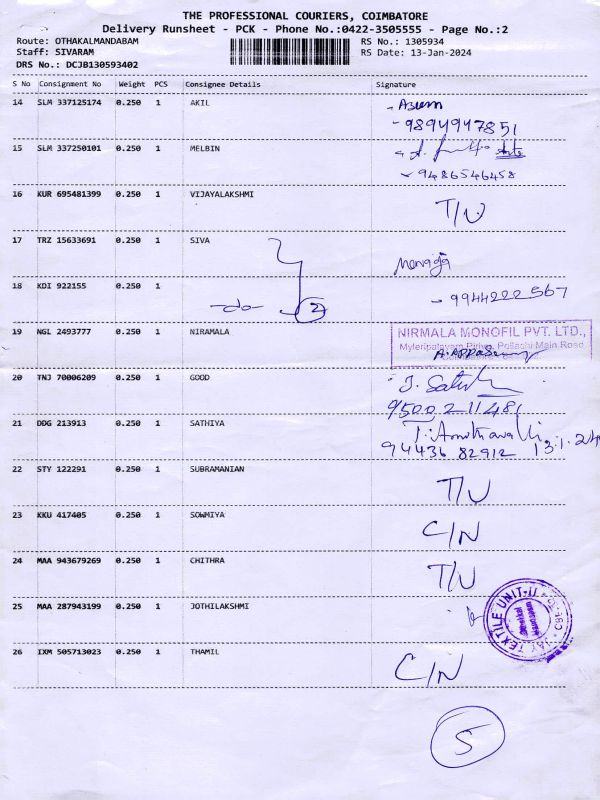 THE PROFESSIONAL COURIERS, COIMBATORE
Delivery Runsheet - PCK - Phone No.:0422-3505555 - Page No.:2
Route: OTHAKALMANDABAM
RS No.: 1305934
Staff: SIVARAM
RS Date: 13-Jan-2024
DRS No.: DCJB130593402
S No Consignment No Weight PCS Consignee Details Signature
14 SLM 337125174 0.250 1 AKIL
- 9894947851
15 SLM 337250101 0.250 1 MELBIN
- 9486546458
16 KUR 695481399 0.250 1 VIJAYALAKSHMI T/U
17 TRZ 15633691 0.250 1 SIVA
18 KDI 922155 0.250 1 -do- 2 - 9944222567
19 NGL 2493777 0.250 1 NIRAMALA NIRMALA MONOFIL PVT. LTD.,
Pollachi Main Road
20 TNJ 70006209 0.250 1 GOOD
9500211481
21 DDG 213913 0.250 1 SATHIYA
94436 82912 13.1.24
22 STY 122291 0.250 1 SUBRAMANIAN T/U
23 KKU 417405 0.250 1 SOWMIYA C/N
24 MAA 943679269 0.250 1 CHITHRA T/U
25 MAA 287943199 0.250 1 JOTHILAKSHMI JAY TEXTILE UNIT-II
26 IXM 505713023 0.250 1 THAMIL C/N
5